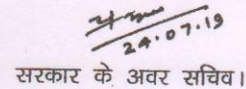 24.07.19
सरकार के अवर सचिव।